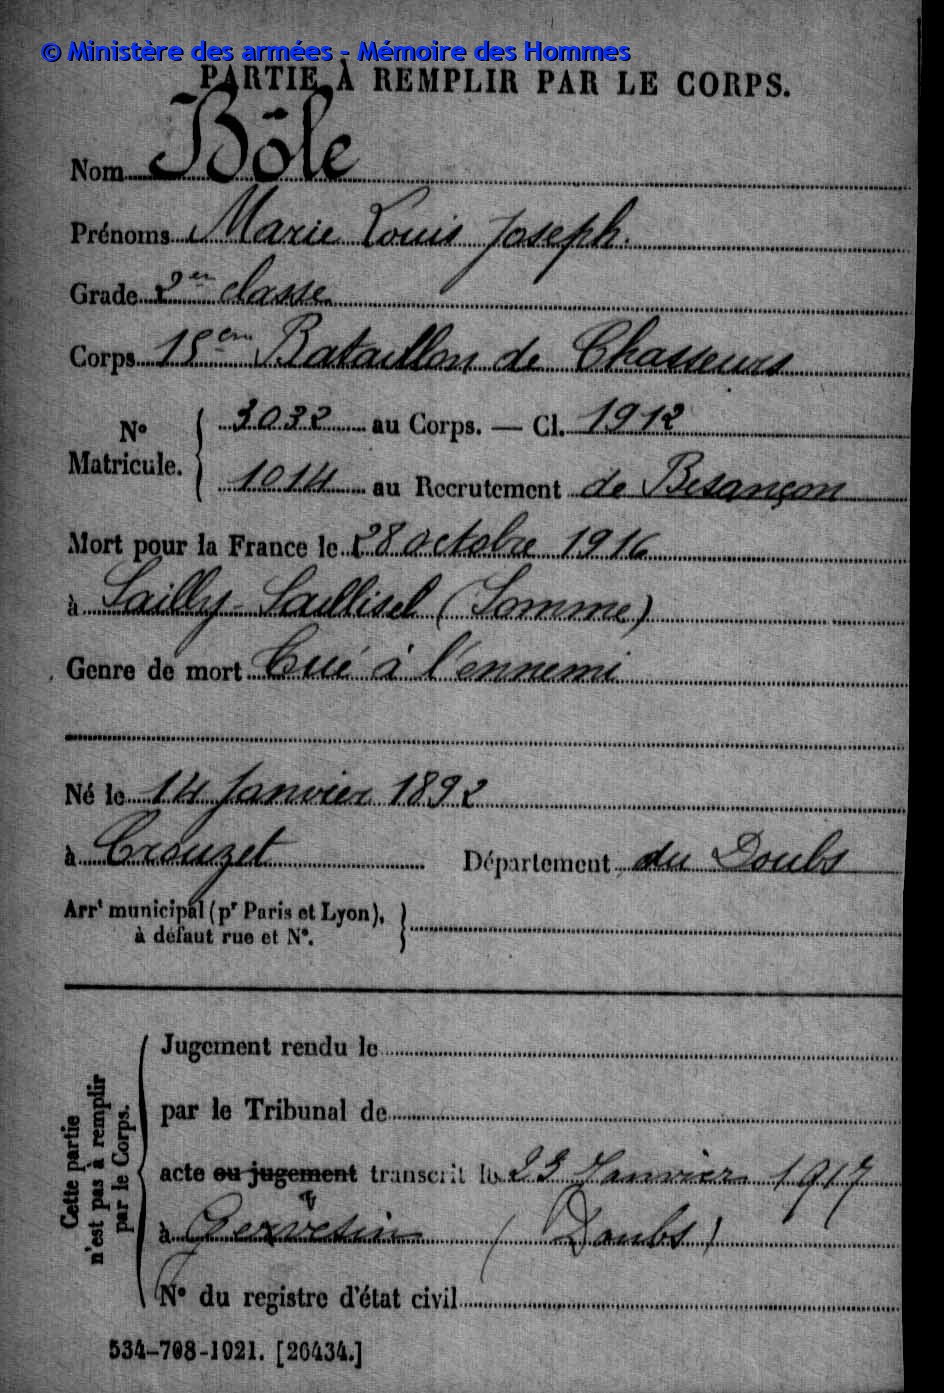 © Ministère des armées - Mémoire des Hommes
PARTIE À REMPLIR PAR LE CORPS.
Nom Bôle
Prénoms Marie Louis Joseph.
Grade 2em classe
Corps 15em Bataillon de Chasseurs
N° Matricule. { 3032 au Corps. — Cl. 1912
1014 au Recrutement de Besançon
Mort pour la France le 28 octobre 1916
à Sailly-Saillisel (Somme)
Genre de mort Tué à l'ennemi
Né le 14 Janvier 1892
à Crouzet Département du Doubs
Arrt municipal (pr Paris et Lyon), }
à défaut rue et N°.
Cette partie
n'est pas à remplir
par le Corps.
Jugement rendu le
par le Tribunal de
acte ou jugement transcrit le 23 Janvier 1917
à (Doubs)
N° du registre d'état civil
534-708-1921. [26434.]